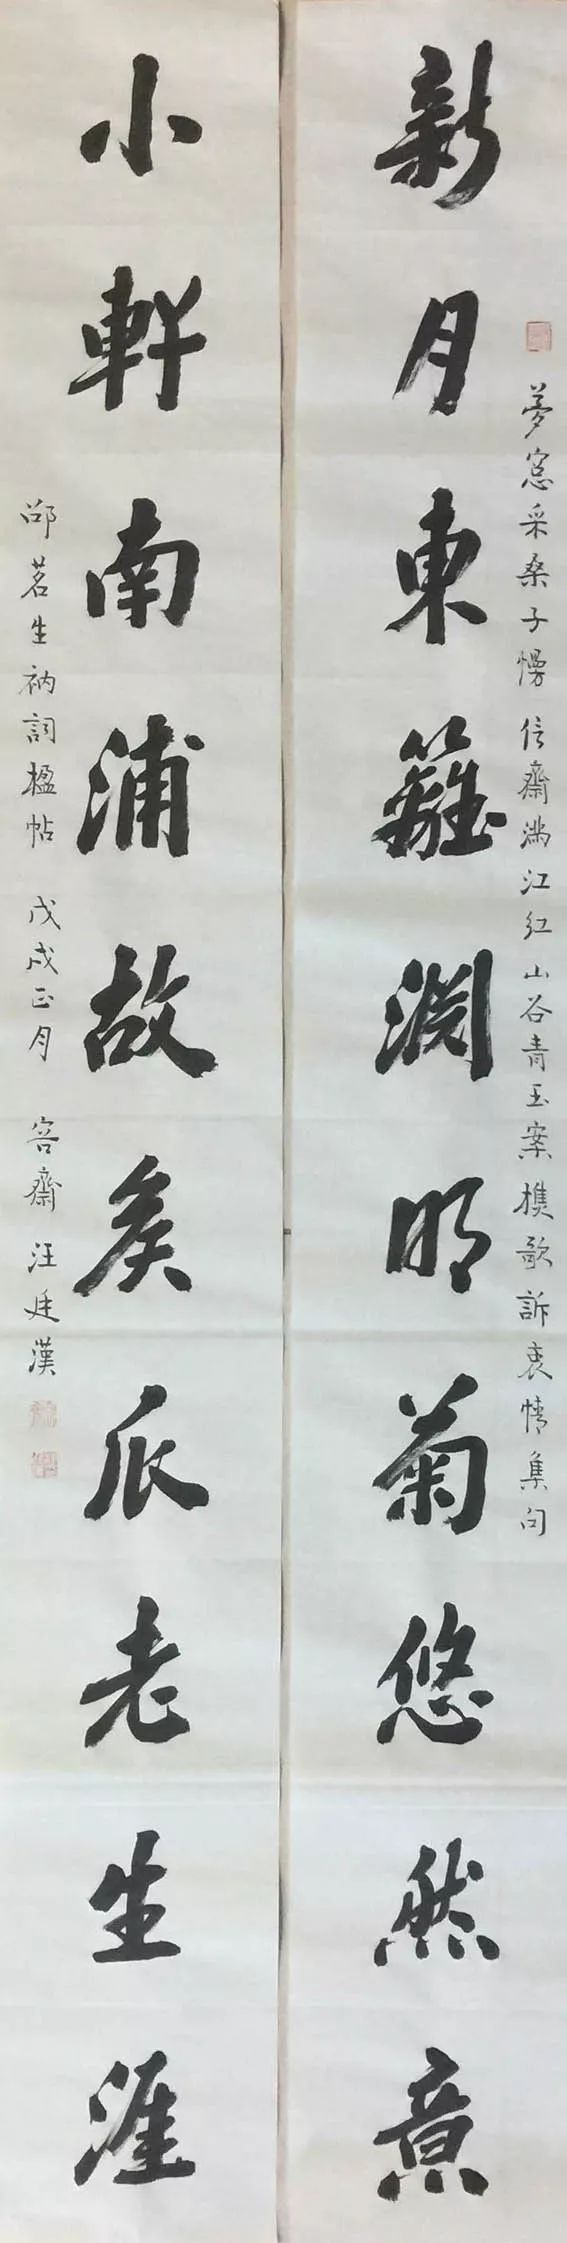 夢窓采桑子慢 信齋滿江紅 山谷青玉案 樵歌訴衷情集句
新月東籬淵明菊悠然意
小軒南浦故矦瓜老生涯
邵茗生衲詞楹帖 戊戌正月 容齋汪廷漢